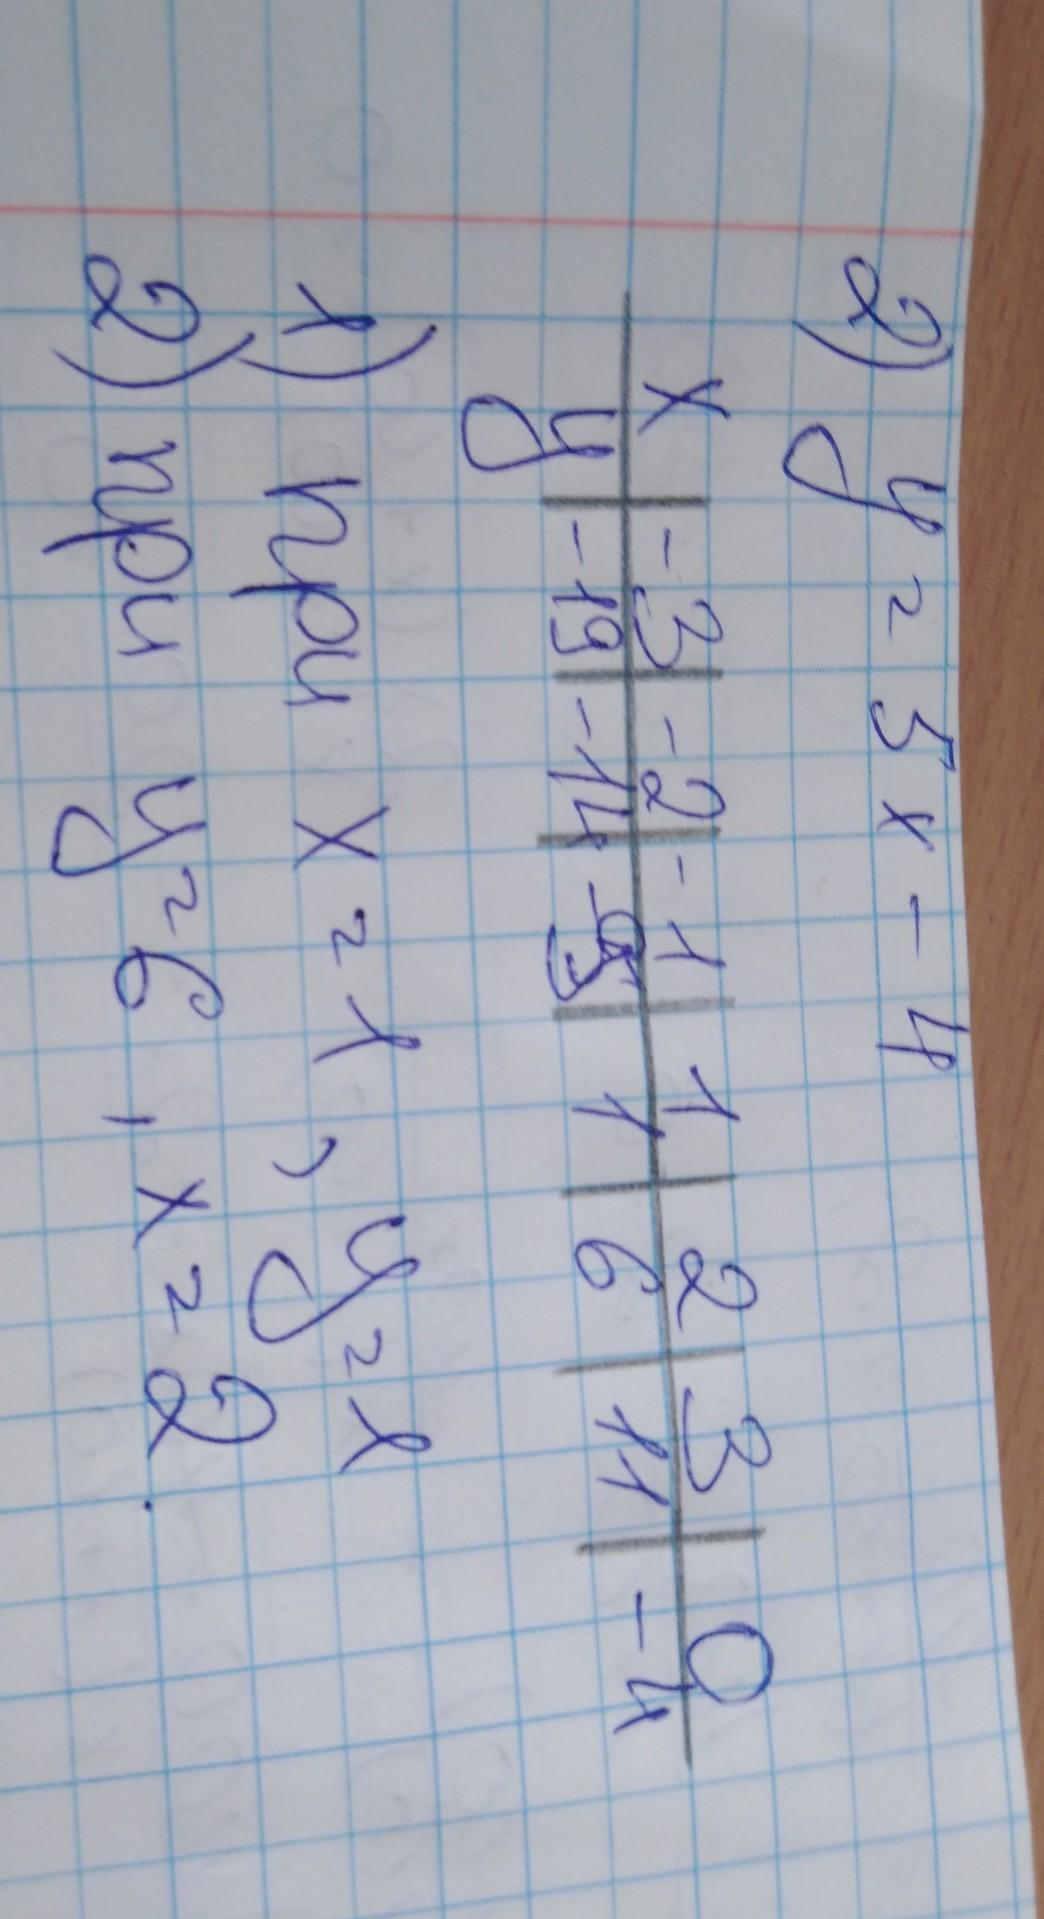 2) y = 5x - 4
x -3 -2 -1 1 2 3 0
y -19 -14 -9 1 6 11 -4
1) при x = 1, y = 1
2) при y = 6, x = 2.